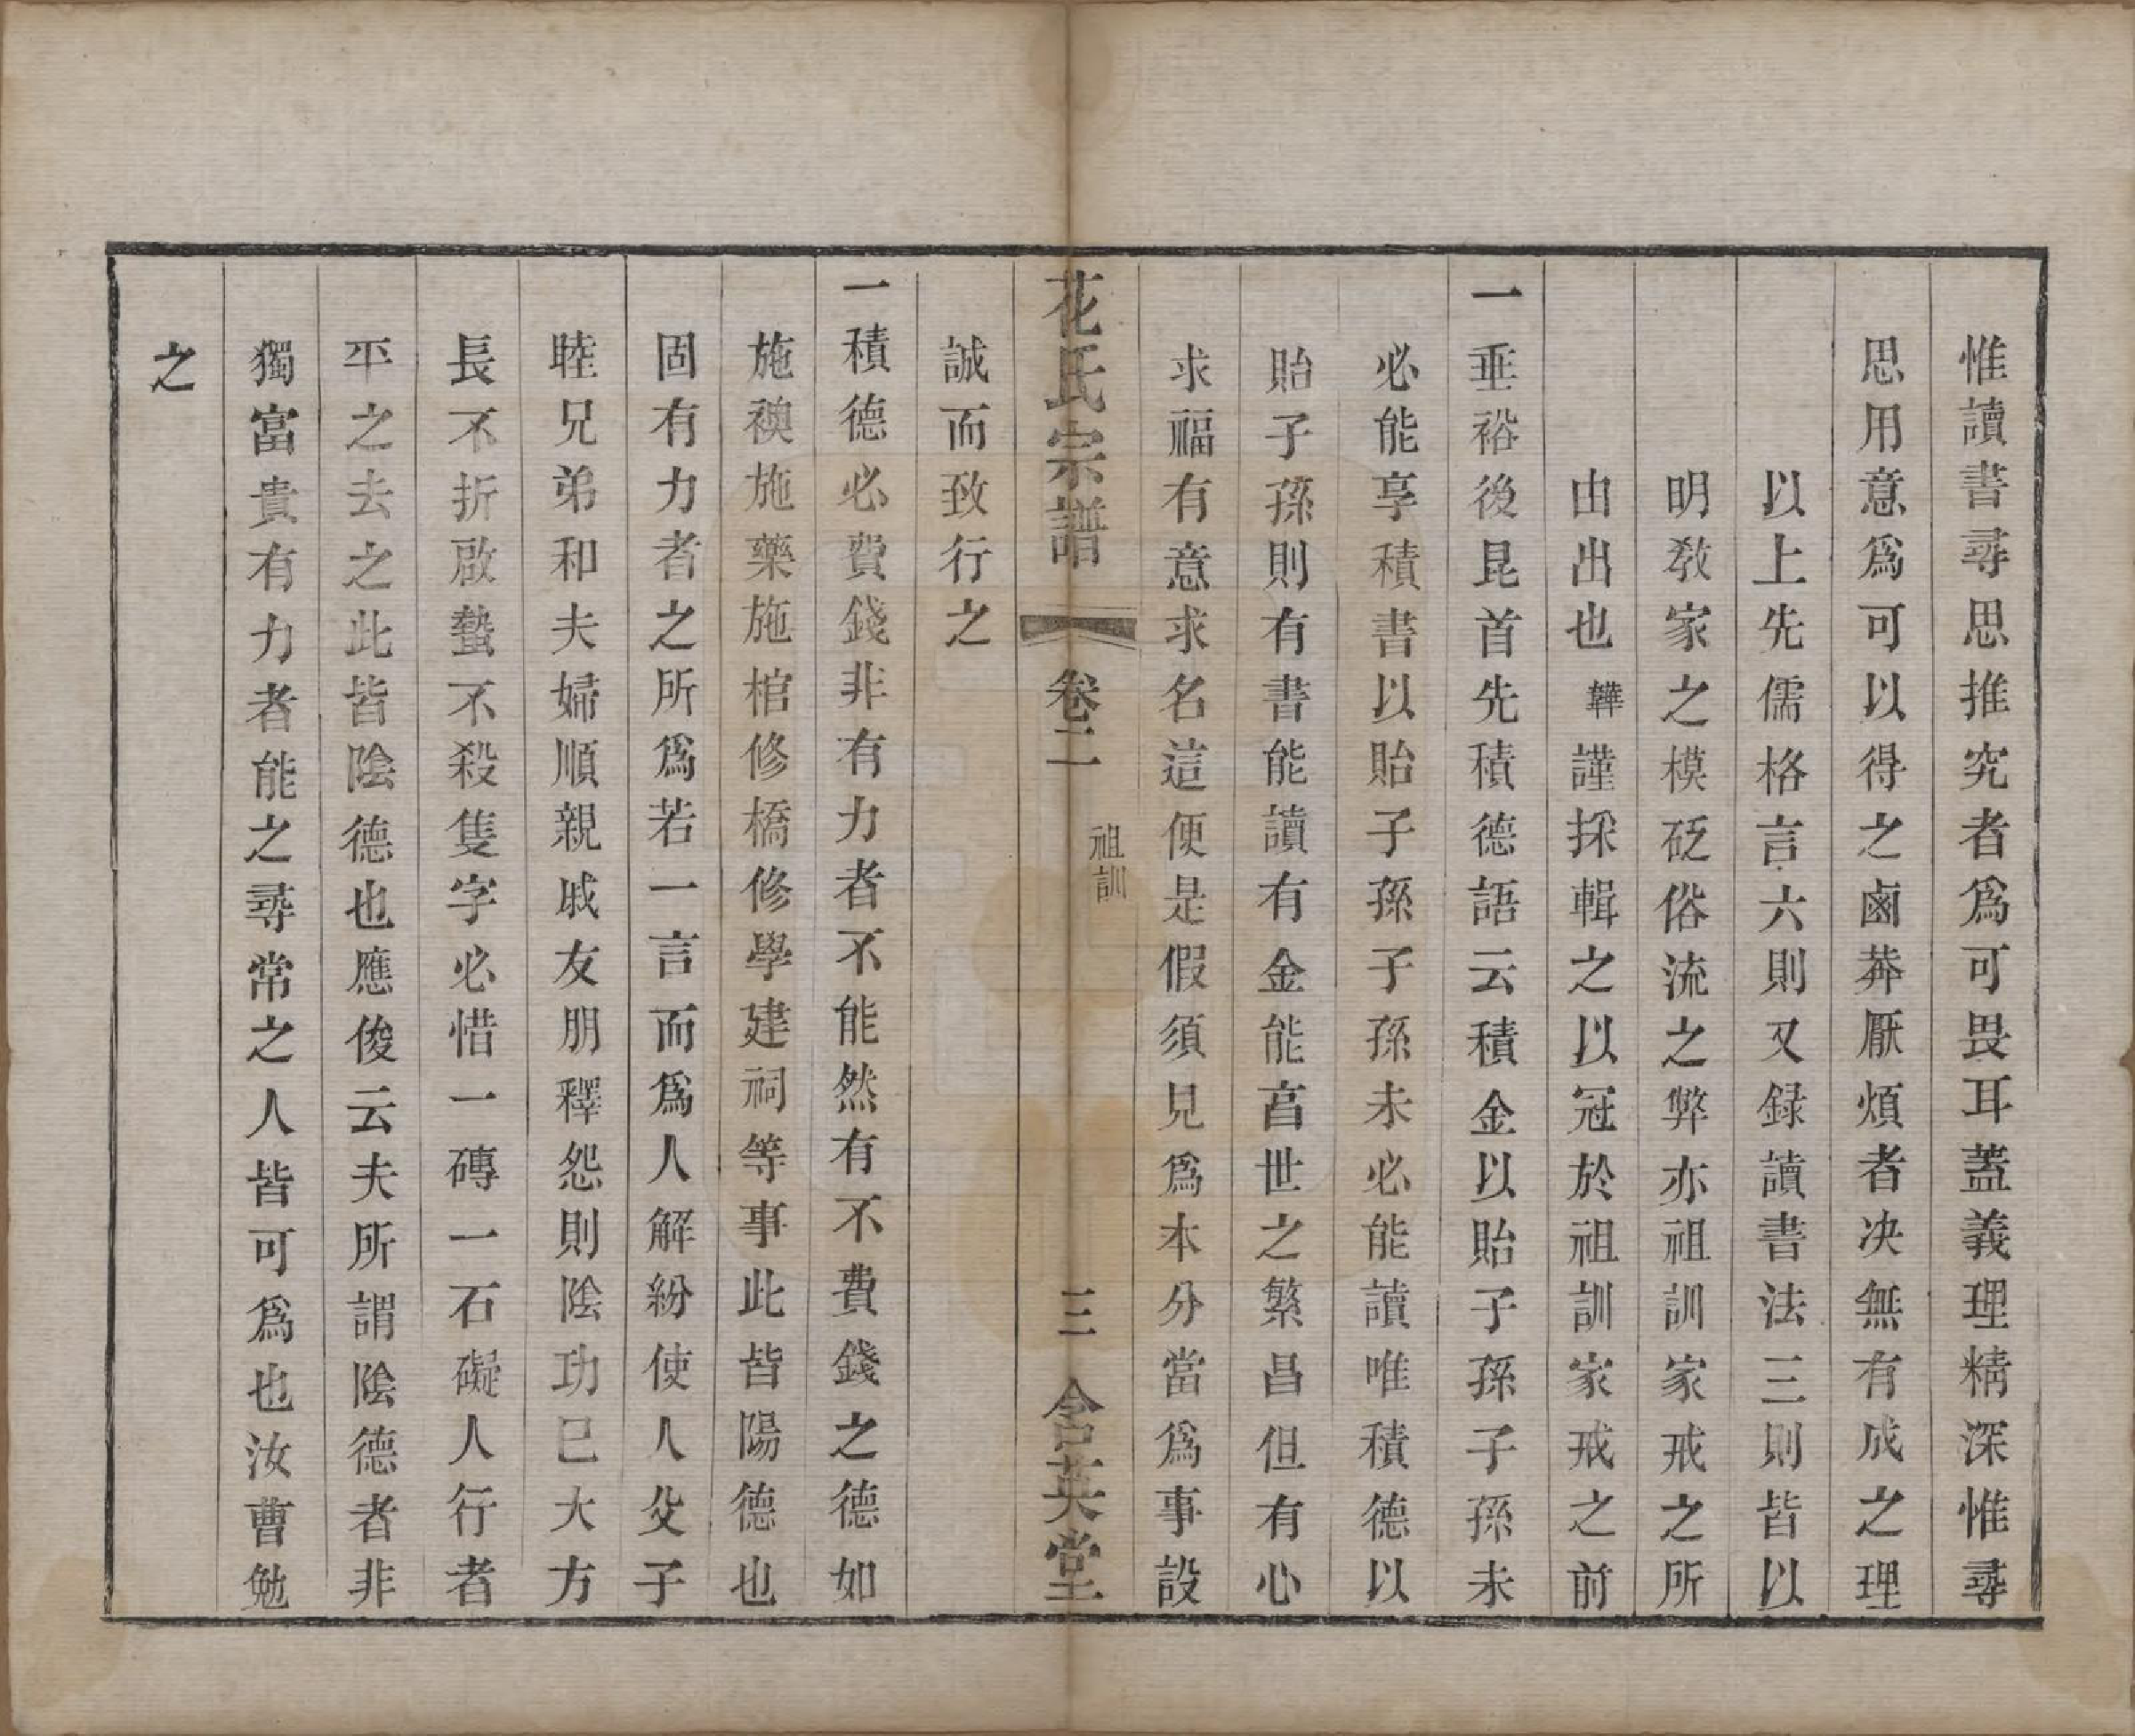 惟讀書尋思推究者爲可畏耳蓋義理精深惟尋
思用意爲可以得之鹵莽厭煩者决無有成之理
以上先儒格言六則又録讀書法三則皆以
明教家之模砭俗流之弊亦祖訓家戒之所
由出也韡謹採輯之以冠於祖訓家戒之前
一垂裕後昆首先積德語云積金以貽子孫子孫未
必能享積書以貽子孫子孫未必能讀唯積德以
貽子孫則有書能讀有金能享世之繁昌但有心
求福有意求名這便是假須見爲本分當爲事設
花氏宗譜 卷二 祖訓 三 含英堂
誠而致行之
一積德必費錢非有力者不能然有不費錢之德如
施襖施藥施棺修橋修學建祠等事此皆陽德也
固有力者之所爲若一言而爲人解紛使人父子
睦兄弟和夫婦順親戚友朋釋怨則陰功已大方
長不折啟蟄不殺隻字必惜一磚一石礙人行者
平之去之此皆陰德也應俊云夫所謂陰德者非
獨富貴有力者能之尋常之人皆可爲也汝曹勉
之